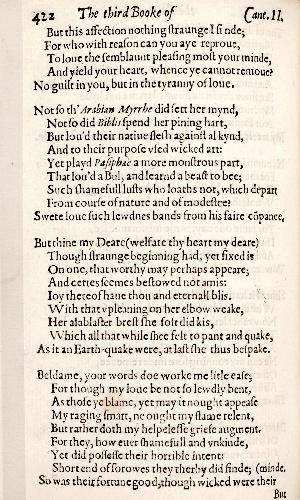 422 The third Booke of Cant. II.
But this affection nothing straunge I finde;
For who with reason can you aye reproue,
To loue the semblaunt pleasing most your minde,
And yield your heart, whence ye cannot remoue?
No guilt in you, but in the tyranny of loue.
Not so th' Arabian Myrrhe did sett her mynd,
Not so did Biblis spend her pining hart,
But lou'd their natiue flesh against al kynd,
And to their purpose vsed wicked art:
Yet playd Pasiphaë a more monstrous part,
That lou'd a Bul, and learnd a beast to bee;
Such shamefull lusts who loaths not, which depart
From course of nature and of modestee?
Swete loue such lewdnes bands from his faire cõpanee,
But thine my Deare (welfare thy heart my deare)
Though straunge beginning had, yet fixed is
On one, that worthy may perhaps appeare;
And certes seemes bestowed not amis:
Ioy thereof haue thou and eternall blis.
With that vpleaning on her elbow weake,
Her alablaster brest she soft did kis,
Which all that while shee felt to pant and quake,
As it an Earth-quake were, at last she thus bespake.
Beldame, your words doe worke me litle ease;
For though my loue be not so lewdly bent,
As those ye blame, yet may it nought appease
My raging smart, ne ought my flame relent,
But rather doth my helpelesse griefe augment.
For they, how euer shamefull and vnkinde,
Yet did possesse their horrible intent:
Short end of sorowes they therby did finde; (minde.
So was their fortune good, though wicked were their
But